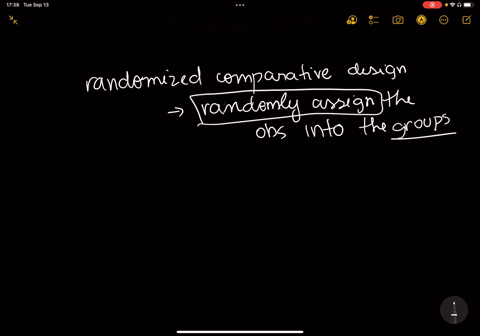 17:38 Tue Sep 13
randomized comparative design
→ randomly assign the
obs into the groups